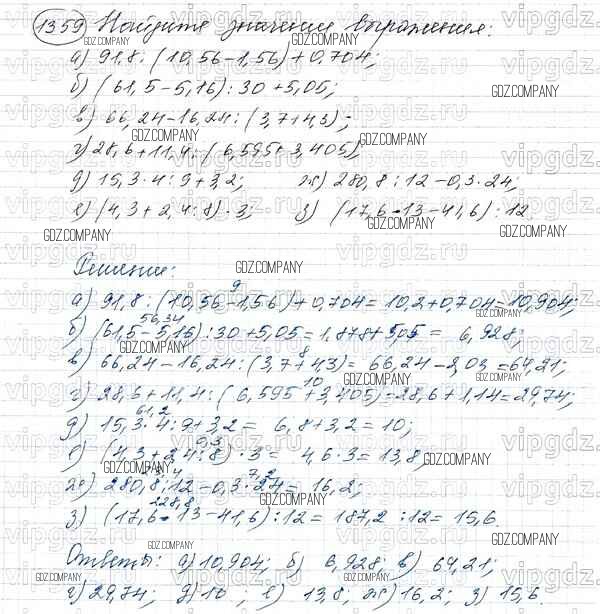 1359 Найдите значение выражения:
а) 91,8 : (10,56-1,56) + 0,704;
б) (61,5-5,16) : 30 + 5,05;
в) 66,24-16,24 : (3,7+4,3);
г) 28,6+11,4 : (6,595+3,405);
д) 15,3·4:9+3,2; ж) 280,8:12-0,3·24;
е) (4,3+2,4:8)·3; з) (17,6·13-41,6):12.
Решение:
9
а) 91,8 : (10,56-1,56)+0,704 = 10,2+0,704 = 10,904;
56,34
б) (61,5-5,16):30+5,05 = 1,878+5,05 = 6,928;
8
в) 66,24-16,24:(3,7+4,3) = 66,24-2,03 = 64,21;
10
г) 28,6+11,4:(6,595+3,405) = 28,6+1,14 = 29,74;
61,2
д) 15,3·4:9+3,2 = 6,8+3,2 = 10;
0,3
е) (4,3+2,4:8)·3 = 4,6·3 = 13,8;
23,4 7,2
ж) 280,8:12-0,3·24 = 16,2;
228,8
з) (17,6·13-41,6):12 = 187,2:12 = 15,6.
Ответы: а) 10,904; б) 6,928; в) 64,21;
г) 29,74; д) 10; е) 13,8; ж) 16,2; з) 15,6
GDZ.COMPANY
vipgdz.ru